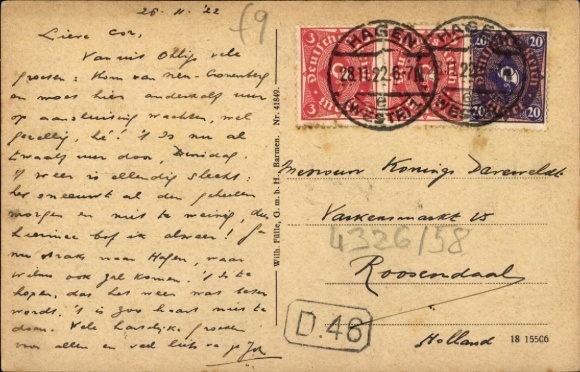 28. 11. '22
f9
Lieve Cor,
Vanuit Ohligs vele
groeten: Kom van
en moet hier anderhalf uur
op aansluiting wachten, wel
gezellig, hè! 't Is nu al
twaalf uur door, Dinsdag.
't Weer is ellendig slecht:
het sneeuwt al den geheelen
morgen en niet te weinig, dus
hiermee bof ik alweer! Ga
nu straks naar Hagen, waar
Wilms ook zal komen. 't Is te
hopen, dat het weer wat beter
wordt. 't is zoo haast niets te
doen. Vele hartelijke groeten
voor allen en veel liefs van je
Wilh. Fülle, G. m. b. H., Barmen. Nr. 41849.
3 Deutsches Reich 3
20 Deutsches Reich 20
HAGEN
28.11.22.6-7N
e
(WESTF.)1
HAGEN
22
e
(WESTF.)
Mevrouw Konings
Varkensmarkt 18
4326/58
Roosendaal
Holland
D.46
18 15506